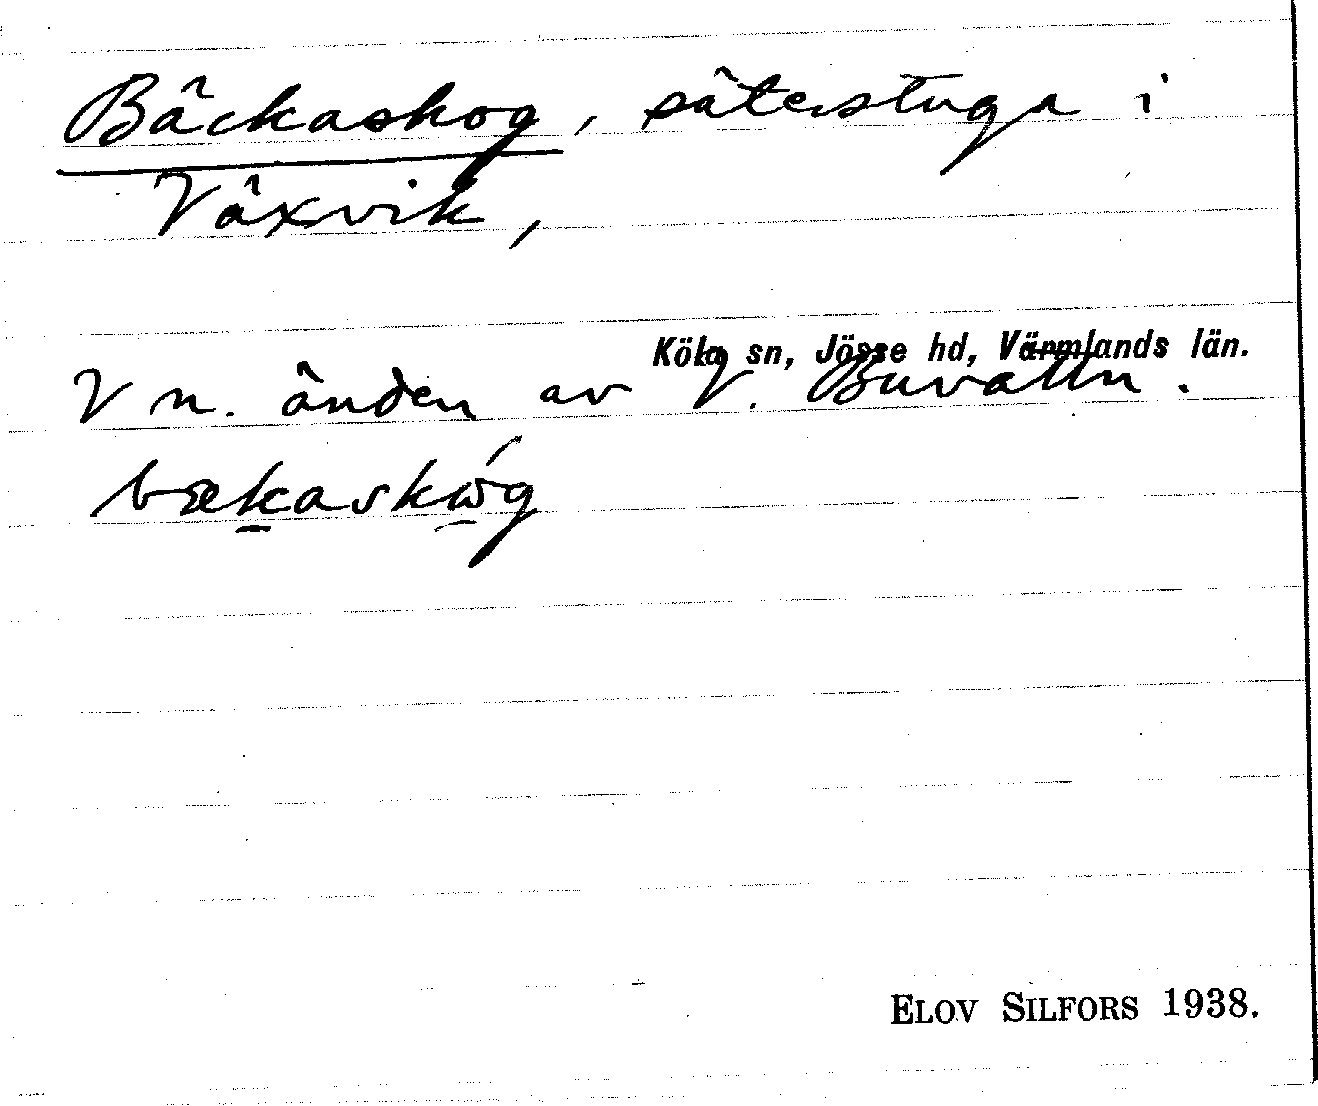 Bäckaskog, säterstuga i
Växvik,
Köla sn, Jösse hd, Värmlands län.
V n. änden av V. Buvattn.
bækaskωg
ELOV SILFORS 1938.